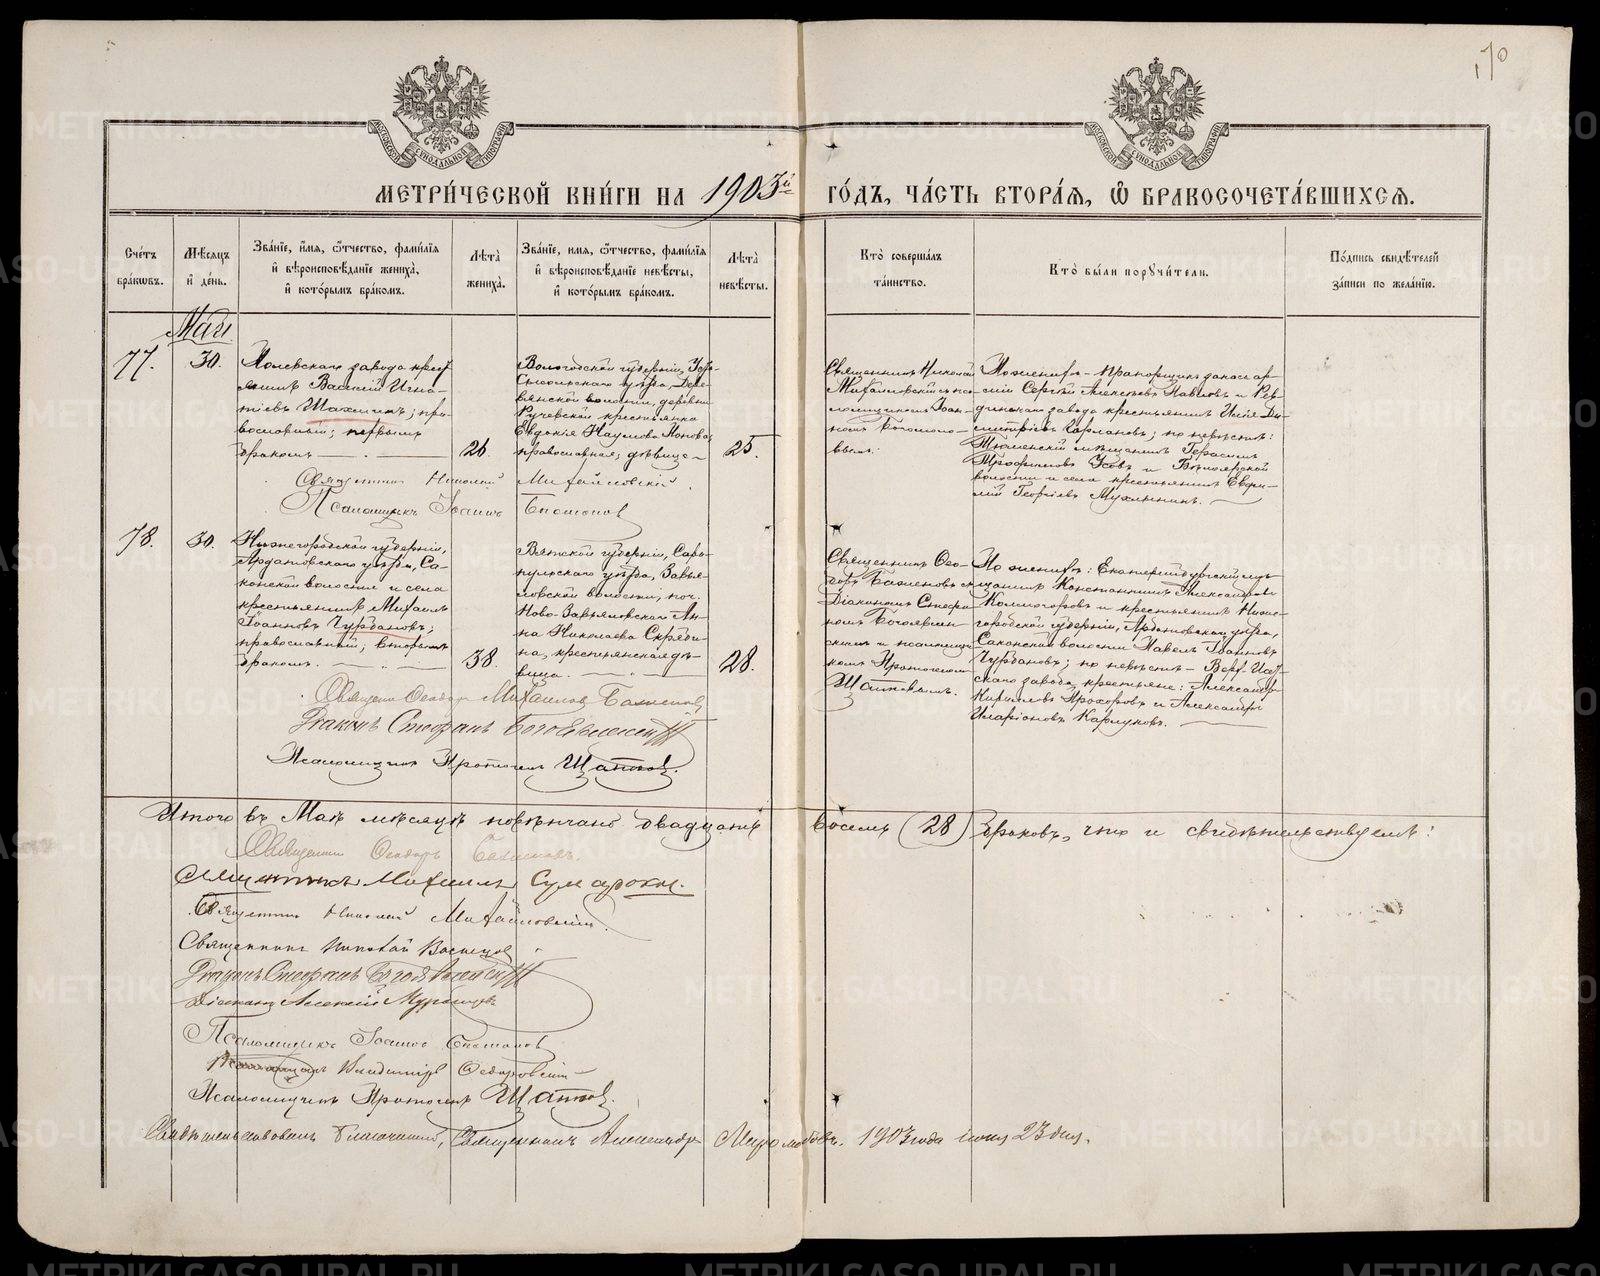 170
МОСКОВСКОЙ СѴНОДАЛЬНОЙ ТИПОГРАФІИ
МОСКОВСКОЙ СѴНОДАЛЬНОЙ ТИПОГРАФІИ
МЕТРИ́ЧЕСКОЙ КНИ́ГИ НА 1903й ГО́ДЪ, ЧА́СТЬ ВТОРА́Я, Ѽ БРАКОСОЧЕТА́ВШИХСЯ.
Сче́тъ бра́ковъ.
Мѣ́сяцъ и҆ де́нь.
Зва́нїе, и҆́мя, ѻ҆́тчество, фами́лїя и҆ вѣроисповѣ́данїе жениха̀, и҆ кото́рымъ бра́комъ.
Лѣ́та жениха̀.
Зва́нїе, имя, ѻ҆́тчество, фами́лїя и҆ вѣроисповѣ́данїе невѣ́сты, и҆ кото́рымъ бра́комъ.
Лѣ́та невѣ́сты.
Кто̀ соверша́лъ та́инство.
Кто̀ бы́ли порꙋчи́тели.
По́дпись свидѣ́телей за́писи по жела́нїю.
Май
77.
30.
Полевскаго завода крест
янинъ Василій Игна
тіевъ Шахминъ; пра
вославный; первымъ
бракомъ
26.
Вологодской губерніи, Усть
Сысольскаго уѣзда, Дере
вянской волости, деревни
Ручевской крестьянка
Евдокія Наумова Попова;
православная; дѣвица
25.
Священникъ Николай
Михайловскій съ пса
ломщикомъ Іоан
номъ
По женихѣ: Прапорщикъ запаса ар
міи Сергѣй Алексѣевъ Павловъ и Рев
динскаго завода крестьянинъ Илія Ди
митріевъ; по невѣстѣ:
Тюменскій мѣщанинъ Герасимъ
Трофимовъ Усовъ и Бѣлоярской
волости и села крестьянинъ
Георгіевъ Мухлынинъ.
Священникъ Николай Михайловскій
Псаломщикъ Іоаннъ
78.
30.
Нижегородской губерніи,
Ардатовскаго уѣзда, Са
конской волости и села
крестьянинъ Михаилъ
Іоанновъ Чурбановъ;
православный; вторымъ
бракомъ.
38.
Вятской губерніи, Сара
пульскаго уѣзда, Завья
ловской волости, поч.
Ново-Завьяловскаго Ан
на Николаева Скряби
на, крестьянская дѣ
вица.
28.
Священникъ Ѳео
доръ Баженовъ съ
Діакономъ Стефа
номъ Богоявлен
скимъ и псаломщи
комъ
По женихѣ: Екатеринбургскій мѣ
щанинъ Константинъ Александровъ
Колмогоровъ и крестьянинъ Ниже
городской губерніи, Ардатовскаго уѣзда,
Саконской волости Павелъ Іоанновъ
Чурбановъ; по невѣстѣ – Верх-Исет
скаго завода крестьяне: Александръ
Кирилловъ Прохоровъ и Александръ
Иларіоновъ Карпуковъ.
Священникъ Ѳеодоръ Михаиловъ Баженовъ
Діаконъ Стефанъ Богоявленскій
Псаломщикъ
Итого въ Маѣ мѣсяцѣ повѣнчано двадцать восемь (28) браковъ, что и свидѣтельствуемъ:
Священникъ Ѳеодоръ Баженовъ.
Священникъ Михаилъ Сумароковъ.
Священникъ Николай Михайловскій.
Священникъ Николай
Діаконъ Стефанъ Богоявленскій
Діаконъ Алексій
Псаломщикъ Іоаннъ
Псаломщикъ Владиміръ Ѳедоровскій
Псаломщикъ
Свидѣтельствовалъ Благочинный, Священникъ Александръ Миролюбовъ. 1903 года іюня 23 дня.
METRIKI.GASO-URAL.RU